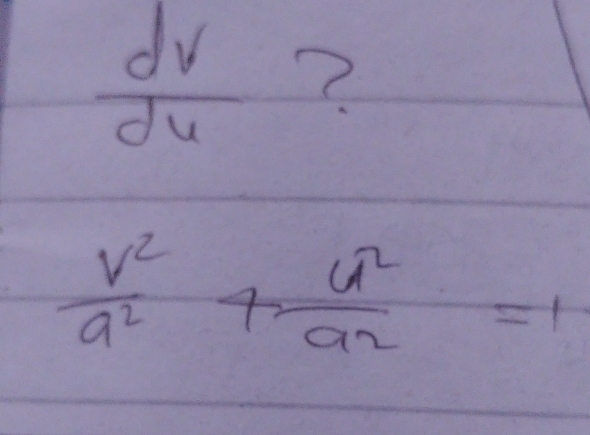 dv/du ?
v²/a² + u²/a² = 1